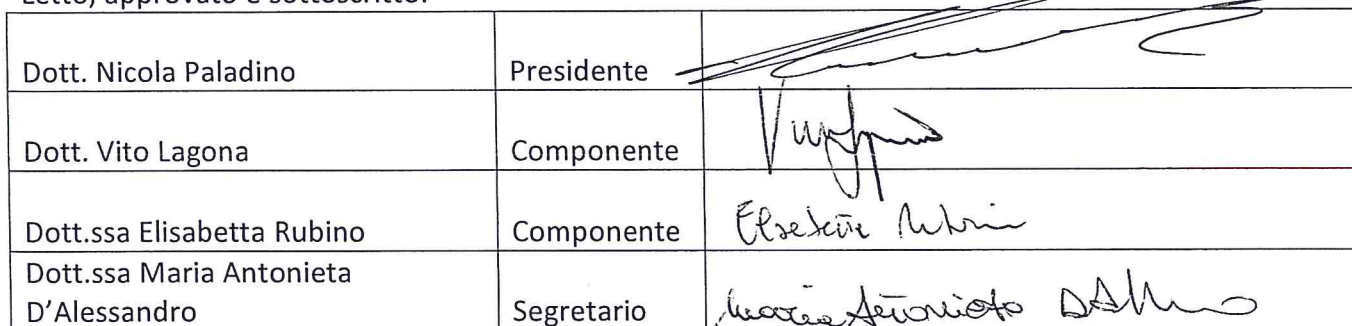 Letto, approvato e sottoscritto.
Dott. Nicola Paladino Presidente
Dott. Vito Lagona Componente
Dott.ssa Elisabetta Rubino Componente Elisabetta Rubino
Dott.ssa Maria Antonieta
D’Alessandro Segretario Maria Antonieta